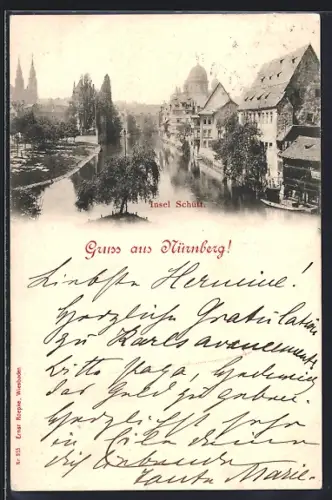 Insel Schütt.
Gruss aus Nürnberg!
Liebste Hermine!
Herzliche Gratulation
zu Karls avancement
bitte Papa
das Geld zu geben.
Herzlichst
in Liebe deine
dich liebende
Tante Marie.
Nr 315 Ernst Roepke, Wiesbaden